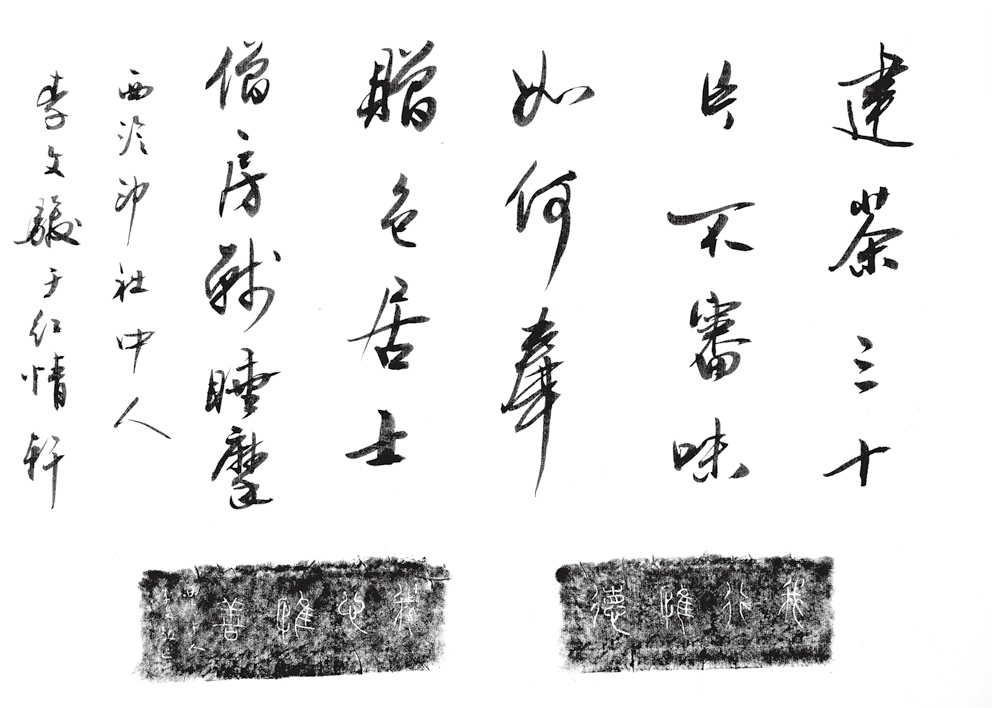 建茶三十
片不審味
如何奉
贈包居士
僧房戰睡魔
西泠印社中人
李文駿于紅情軒
我行惟德
我心惟善